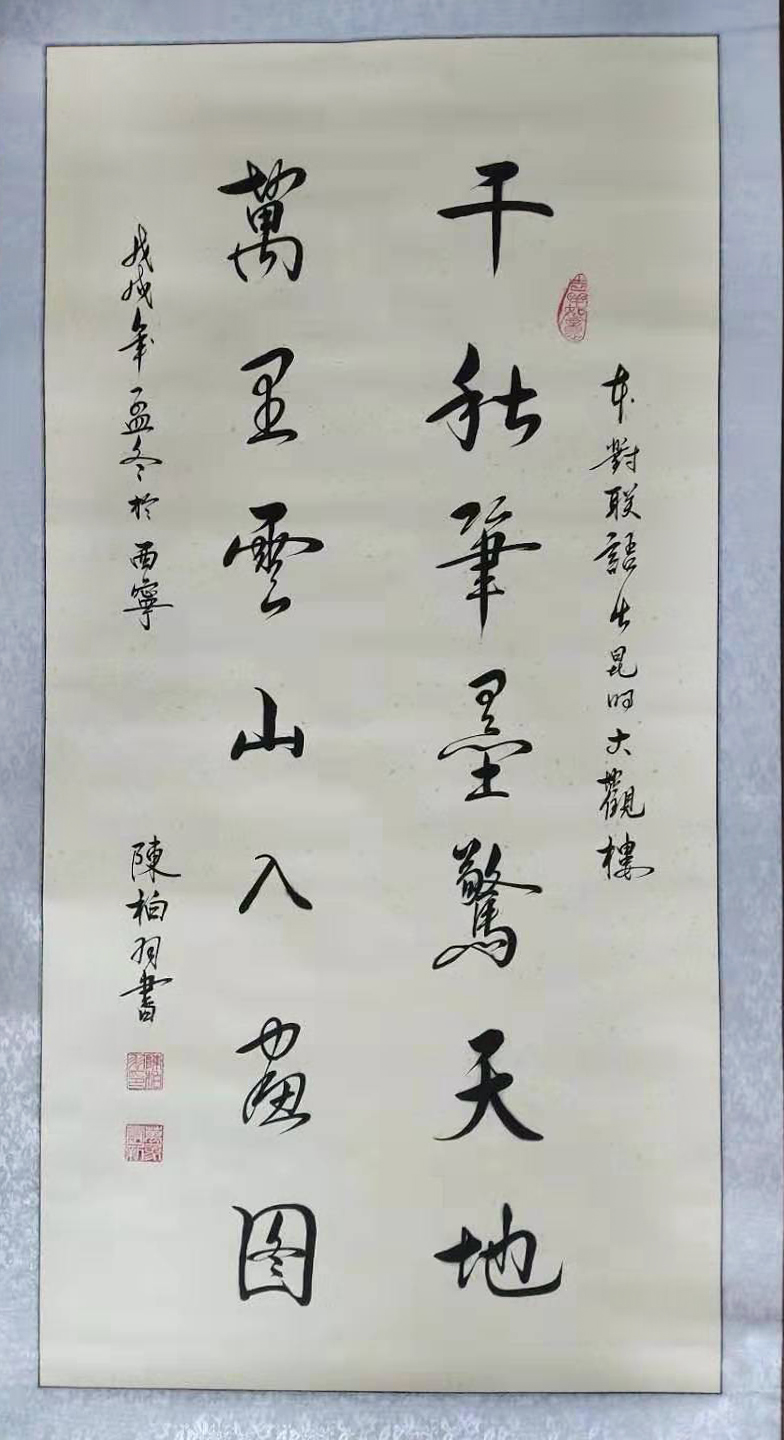 千秋筆墨驚天地
本對联語出昆明大觀樓
萬里雲山入画图
戊戌年孟冬於西寧
陳柏羽書